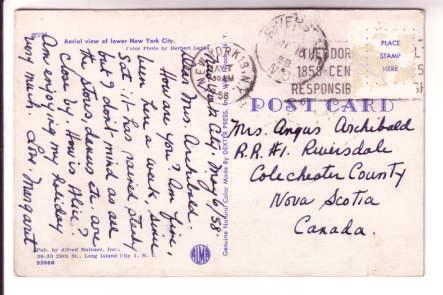 Aerial view of lower New York City.
Color Photo by Herbert
New York City, May 6/58.
Dear Mrs. Archibald:
How are you? Am fine,
been here a week, since
Sat. It has rained steady
but I don't mind as all
the stores, shows etc. are
close by. How is Alice?
Am enjoying my holiday
very much. Love, Margaret
Pub. by Alfred Mainzer, Inc.,
39-33 29th St., Long Island City 1, N. Y.
53988
Genuine Natural Color Made By DEXTER PRESS, Inc.
NEW YORK 19, N.Y.
MAY
AM
1958
1858-CEN
RESPONSIB
PLACE
STAMP
HERE
POST CARD
Mrs. Angus Archibald
R.R.#1. Riversdale
Colchester County
Nova Scotia
Canada.